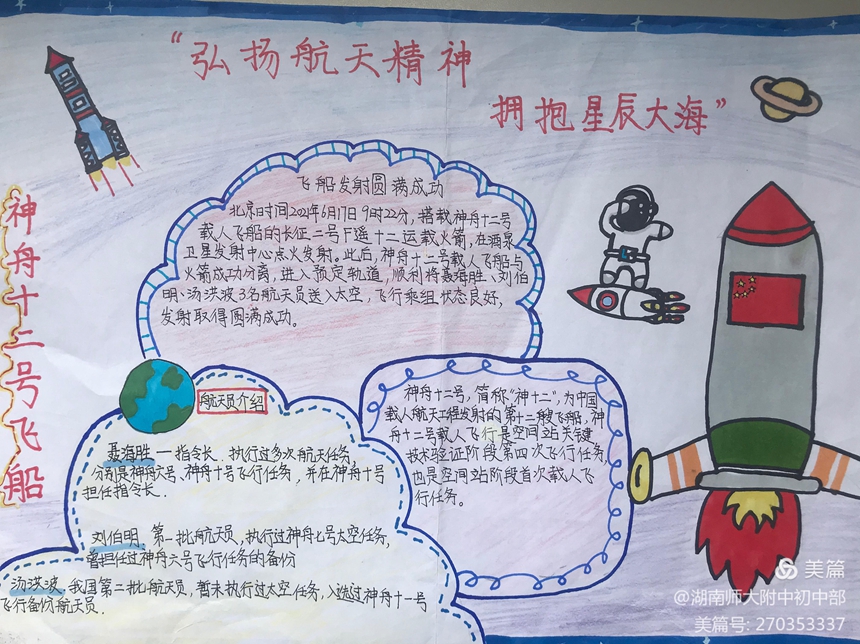 “弘扬航天精神
拥抱星辰大海”
神舟十二号飞船
飞船发射圆满成功
北京时间2021年6月17日9时22分，搭载神舟十二号
载人飞船的长征二号F遥十二运载火箭，在酒泉
卫星发射中心点火发射。此后，神舟十二号载人飞船与
火箭成功分离，进入预定轨道，顺利将聂海胜、刘伯
明、汤洪波3名航天员送入太空，飞行乘组状态良好，
发射取得圆满成功。
航天员介绍
聂海胜—指令长．执行过多次航天任务，
分别是神舟六号、神舟十号飞行任务，并在神舟十号
担任指令长．
刘伯明．第一批航天员，执行过神舟七号太空任务，
曾担任过神舟六号飞行任务的备份
汤洪波，我国第二批航天员，暂未执行过太空任务，入选过神舟十一号
飞行备份航天员．
神舟十二号，简称“神十二”，为中国
载人航天工程发射的第十二艘飞船，神
舟十二号载人飞行是空间站关键
技术验证阶段第四次飞行任务，
也是空间站阶段首次载人飞
行任务。
美篇
@湖南师大附中初中部
美篇号: 270353337